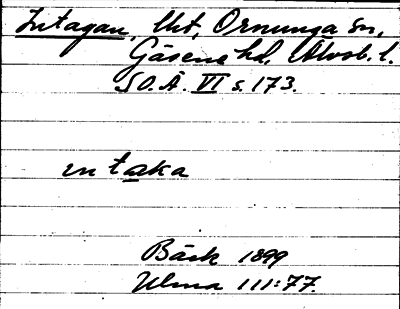 Intagan, lht, Ornunga sn,
Gäsene hd, Älvsb. l.
SO.Ä. VI s. 173.
in taka
Bäck 1899
Ulma 111:77.